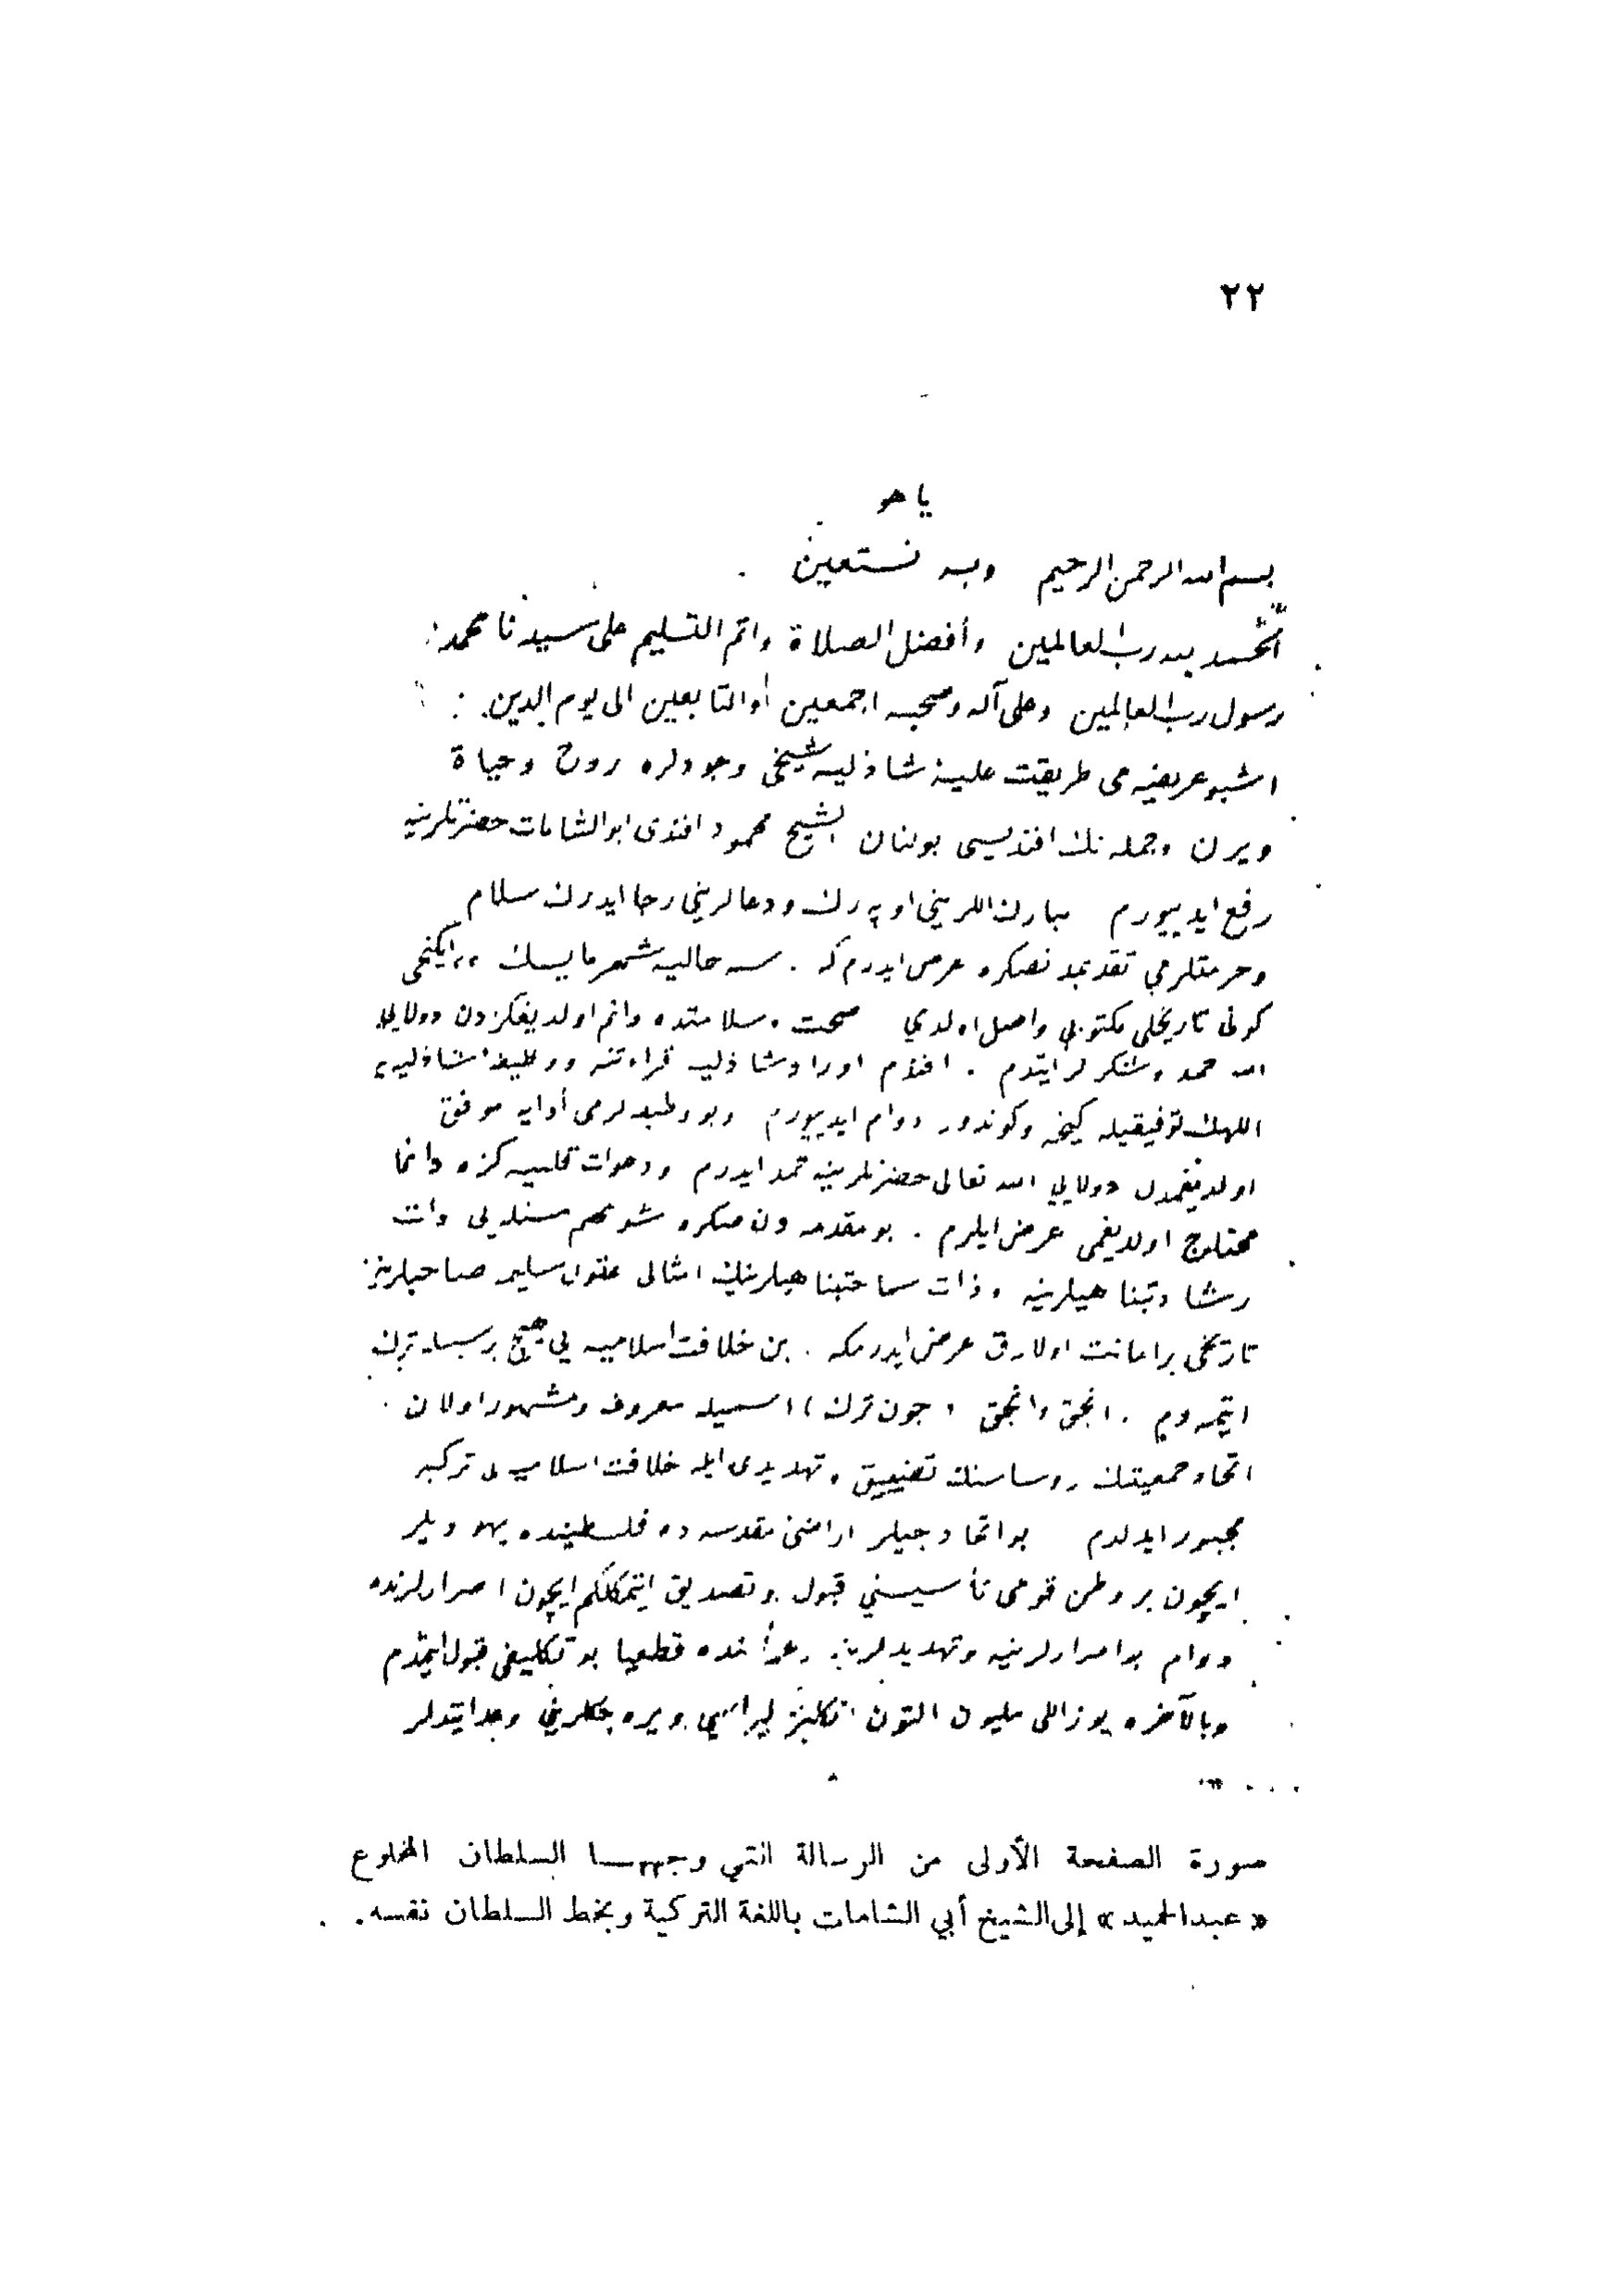 ٢٢
يا هو
بسم الله الرحمن الرحيم وبه نستعين
الحمد لله رب العالمين وأفضل الصلاة واتم التسليم على سيدنا محمد
رسول رب العالمين وعلى آله وصحبه اجمعين والتابعين الى يوم الدين
اشبو عريضه مى طريقت علية شاذليه شيخى وجودلره روح وحياة
ويرن وجمله نك افنديسى بولنان الشيخ محمود افندى ابو الشامات حضرتلرينه
رفع ايدييورم مبارك اللريني اوپه رك ودعالريني رجا ايدرك سلام
وحرمتلرمي تقديمد نصكره عرض ايدرم كه . سنه حاليه شهر مايسك ايكنجى
كونى تاريخلى مكتوبى واصل اولدي صحت وسلامتده دائم اولديغكزدن دولايى
الله حمد وشكرلر ايتدم . افندم اوراد شاذليه قراءتنه ووظيفه شاذليه يه
اللهك توفيقيله كيجه وكوندوز دوام ايدييورم وبو وظيفه لرمى أدايه موفق
اولديغمدن دولايى الله تعالى حضرتلرينه حمد ايدرم ودعوات قلبيه كزه دائما
محتاج اولديغمى عرض ايلرم . بو مقدمه دن صكره شو مهم مسئله يى ذات
رشادتپناهيلرينه وذات سماحتپناهيلرينك امثالى عقول سليمه صاحبلرينه
تاريخى بر امانت اولارق عرض ايدرمكه . بن خلافت اسلاميه يى هيچ بر سببله ترك
ايتمه دم . انجق وانجق (جون ترك) اسميله معروف ومشهور اولان
اتحاد جمعيتنك رؤساسنك تضييق وتهديدى ايله خلافت اسلاميه يى تركه
مجبور ايدلدم بو اتحادجيلر اراضئ مقدسه ده فلسطينده يهوديلر
ايچون بر وطن قومى تأسيسنى قبول وتصديق ايتمكلكم ايچون اصرارلرنده
دوام بو اصرارلرينه وتهديدلرينه رغماً بنده قطعيا بو تكليفى قبول ايتمدم
وبالآخره يوز اللى مليون التون انكليز ليراسى ويره جكلرينى وعد ايتديلر
صورة الصفحة الأولى من الرسالة التي وجهها السلطان المخلوع
«عبدالحميد» إلى الشيخ أبي الشامات باللغة التركية وبخط السلطان نفسه.